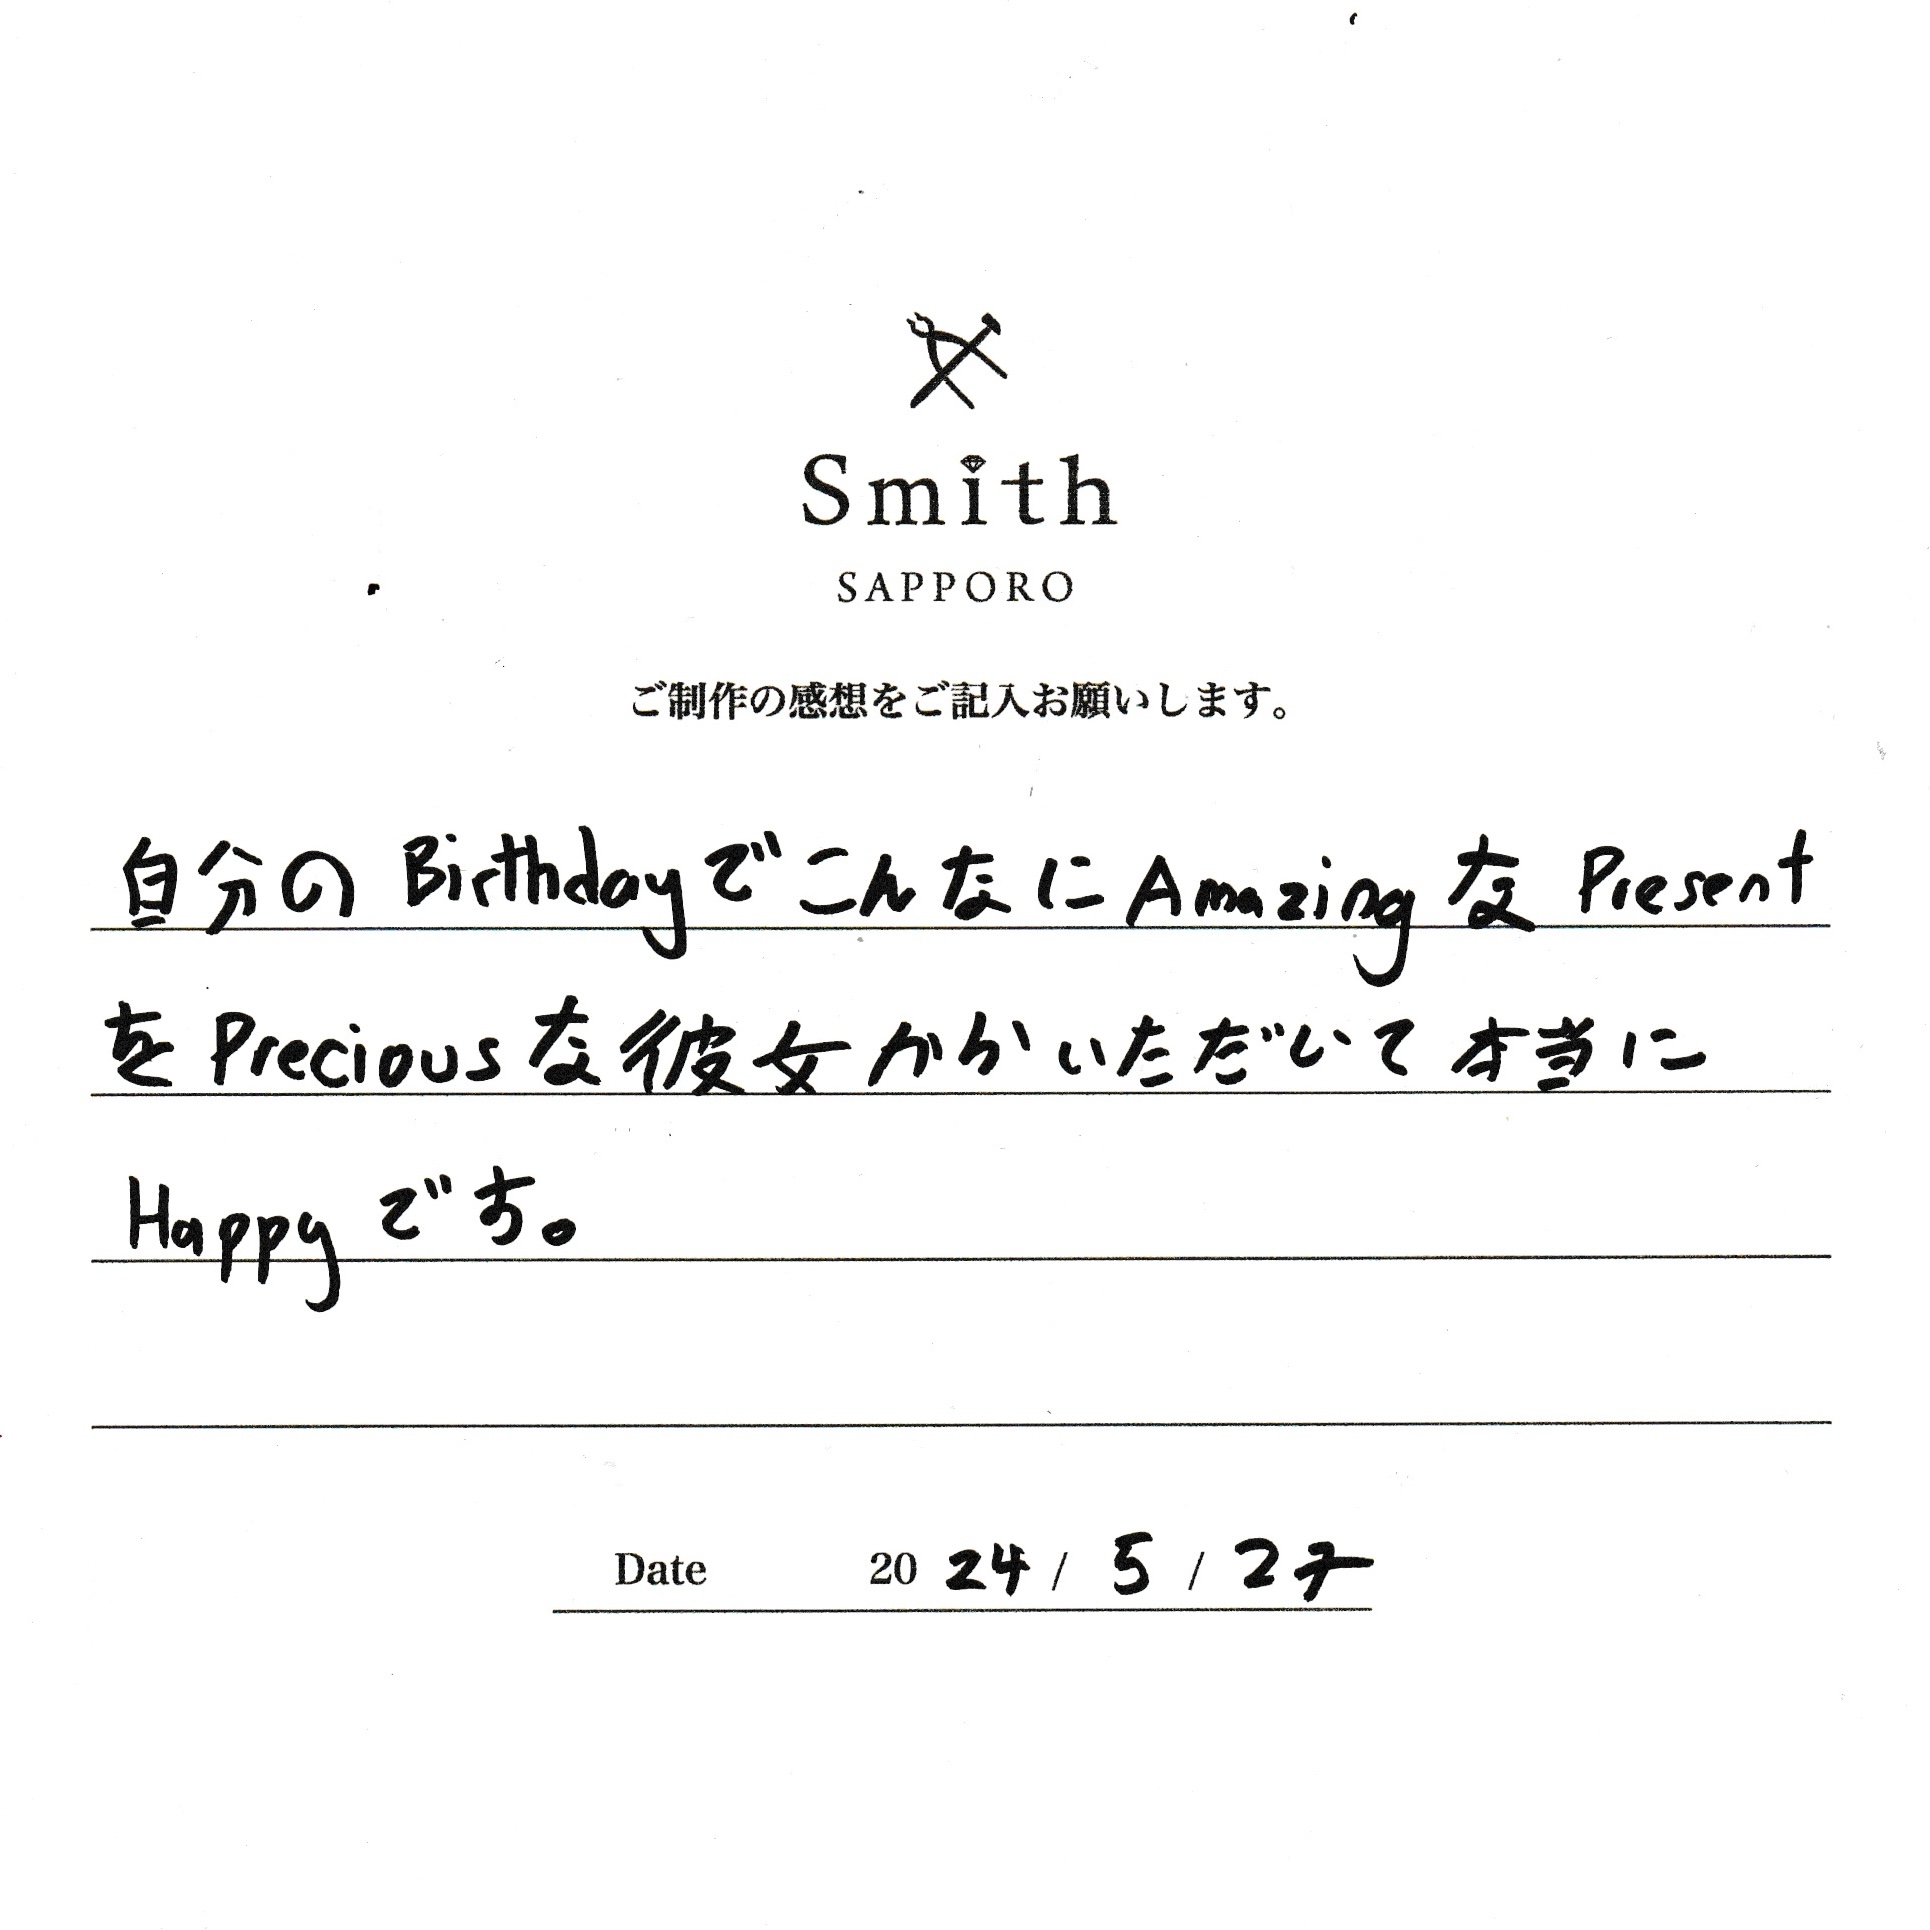 Smith
SAPPORO
ご制作の感想をご記入お願いします。
自分の Birthdayでこんなに Amazing な Present
を Preciousな彼女かかいただいて本当に
Happy です。
Date 20 24 / 5 / 27